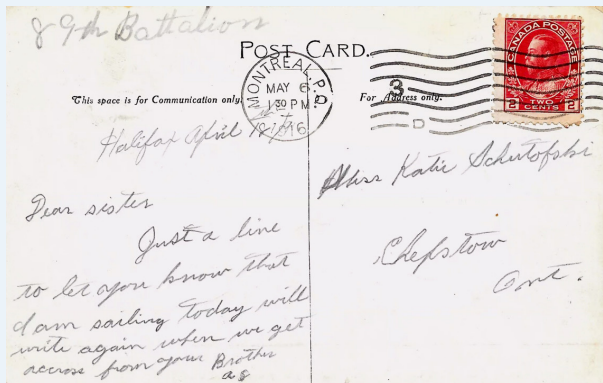 89th Battalion
POST CARD.
MONTREAL, P.Q.
MAY 6
1 30 PM
1916
3
D
CANADA POSTAGE
2 TWO CENTS 2
This space is for Communication only.
For Address only.
Halifax April
Dear sister
Just a line
to let you know that
I am sailing today will
write again when we get
accross from your Brother
Miss Katie Schutofski
Chepstow
Ont.